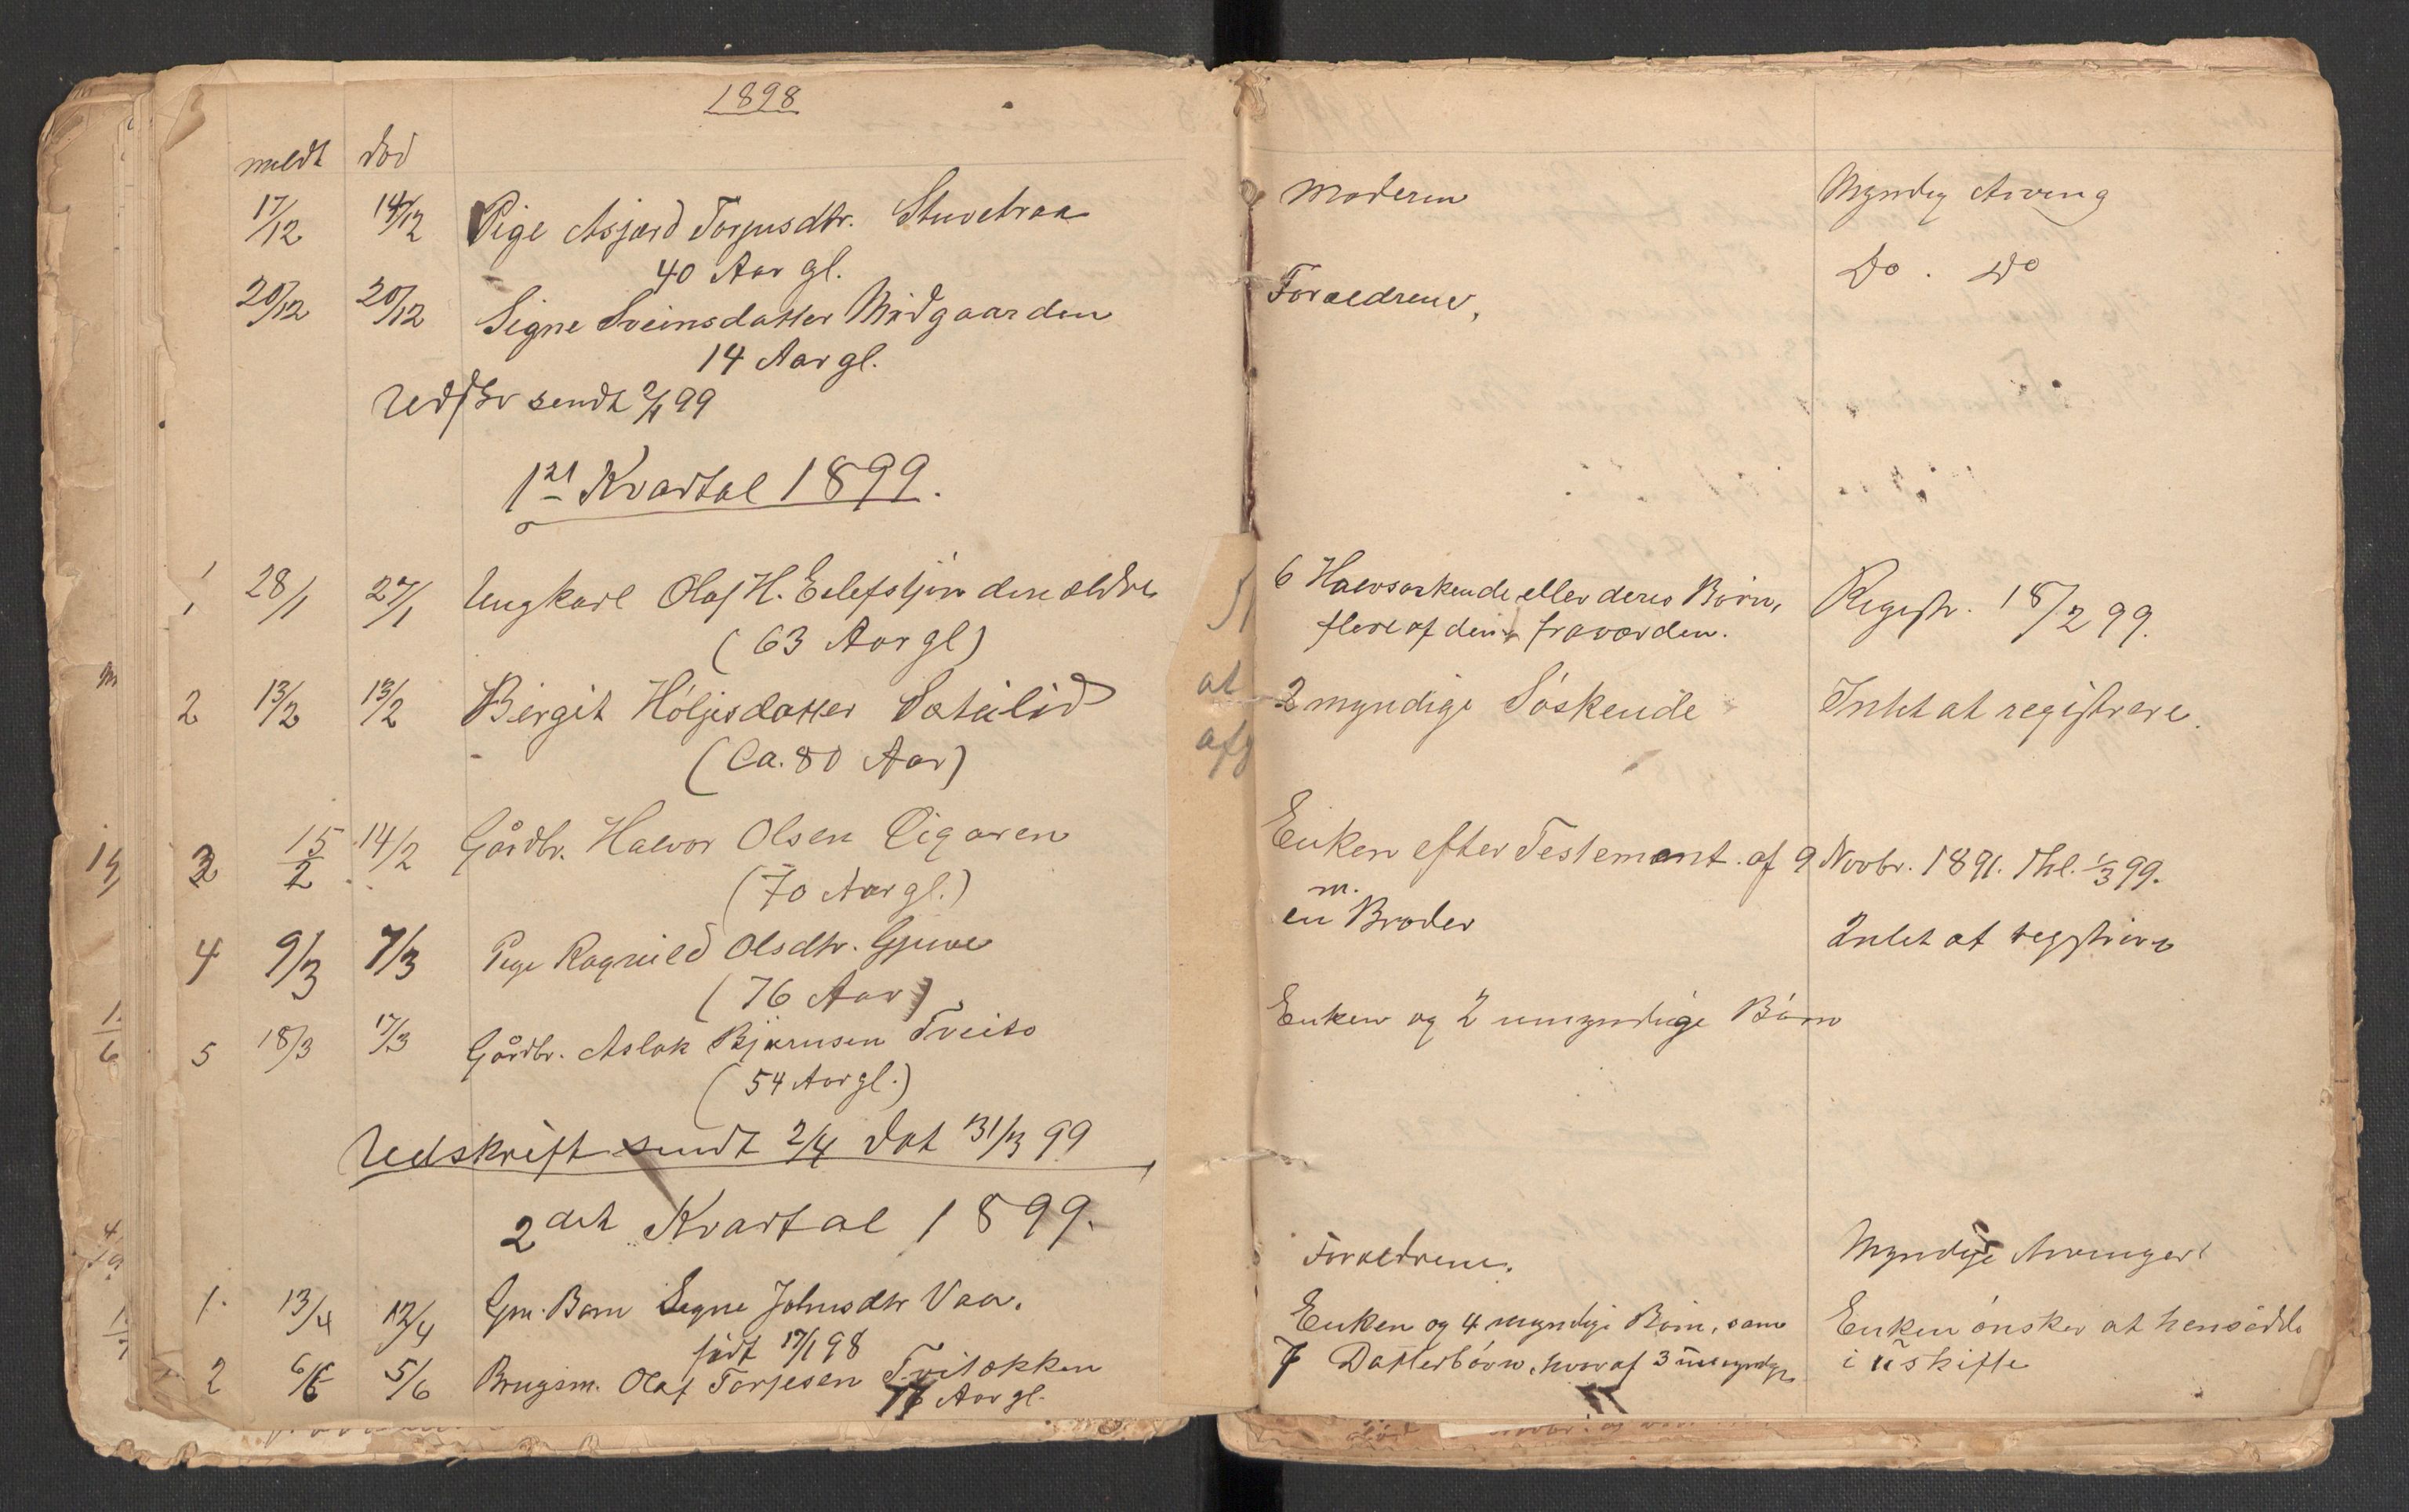 1898
meldt død
17/12 14/12 Pige Asjørd Torjusdtr. Stuvetraa Moderen Myndig Arving
40 Aar gl. Do. Do
20/12 20/12 Signe Sveinsdatter Midgaarden Forældrene,
14 Aar gl.
Udskr sendt 2/1 99
1st Kvartal 1899.
1 28/1 27/1 Ungkarl Olaf H. Eilefstjøn den ældre 6 Halvsøskende eller deres Børn, Registr. 18/2 99.
(63 Aar gl) flere af dem fraværden.
2 13/2 13/2 Birgit Höljesdatter 2 myndige Söskende Intet at registrere.
(Ca. 80 Aar)
3 15/2 14/2 Gårdbr. Halvor Olsen Enken efter Testement. af 9 Novbr. 1891. Thl. 1/3 99.
(70 Aar gl.) en m. Broder
4 9/3 7/3 Pige Ragnild Olsdtr. Gjuve Intet at registrere
(76 Aar) Enken og 2 umyndige Börn
5 18/3 17/3 Gårdbr. Aslak Bjørnsen Tveito
(54 Aar gl.)
Udskrift sendt 2/4 dat 31/3 99
2det Kvartal 1899.
Forældrene. Myndige Arvinger
1. 13/4 12/4 Gm. Barn Signe Johnsdtr Vaa.
født 17/1 98 Enken og 4 myndige Börn, sam Enken önsker at hensidde
2 6/6 5/6 Brugsm. Olaf Torjesen Tvitekken 7 Datterbörn, hvoraf 3 umyndge i uskifte
Aar gl.
at
afg